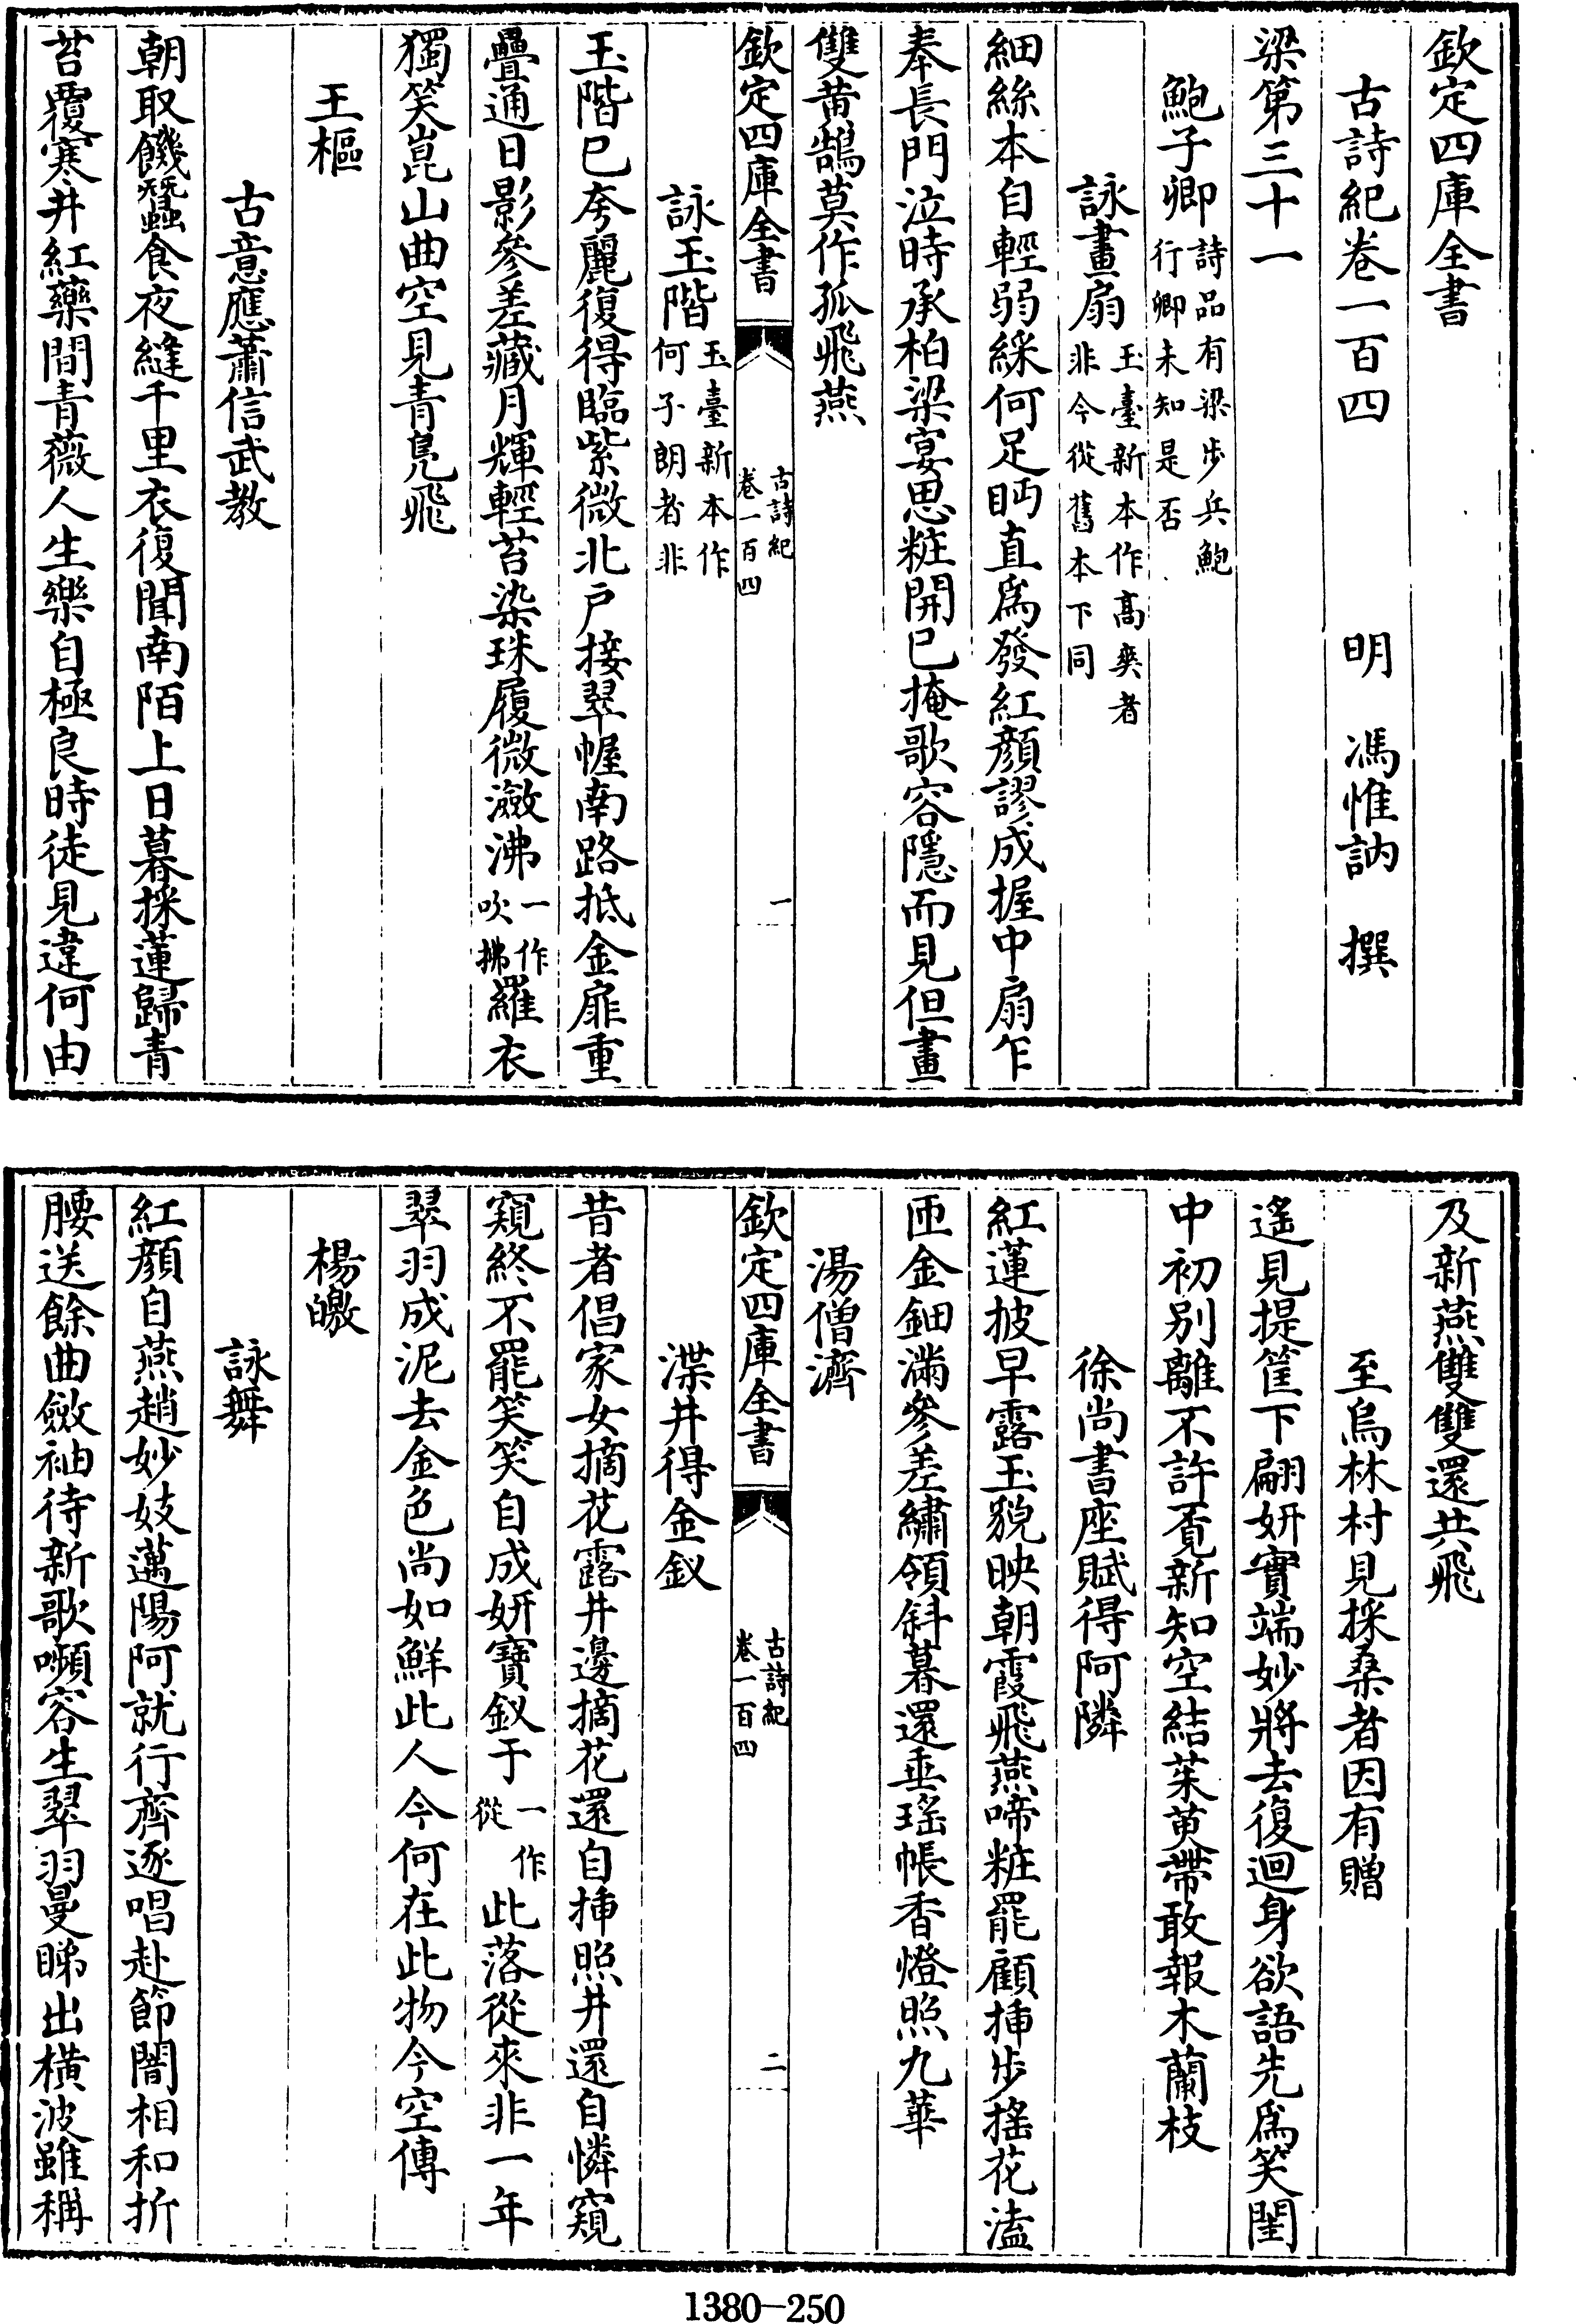 欽定四庫全書
古詩紀卷一百四 明 馮惟訥 撰
梁第三十一
鮑子卿詩品有梁步兵鮑行卿未知是否
詠畫扇玉臺新本作高爽者非今從舊本下同
細絲本自輕弱綵何足眄直爲發紅顔謬成握中扇乍
奉長門泣時承柏梁宴思粧開已掩歌容隱而見但畫
雙黄鵠莫作孤飛燕
欽定四庫全書 古詩紀卷一百四 一
詠玉階玉臺新本作何子朗者非
玉階已夸麗復得臨紫微北戸接翠幄南路抵金扉重
疊通日影參差藏月輝輕苔染珠履微瀲沸一作吹拂羅衣
獨笑崑山曲空見青鳬飛
王樞
古意應蕭信武教
朝取饑蠶食夜縫千里衣復聞南陌上日暮採蓮歸青
苔覆寒井紅藥間青薇人生樂自極良時徒見違何由
及新燕雙雙還共飛
至烏林村見採桑者因有贈
遙見提筐下翩妍實端妙將去復迴身欲語先爲笑閨
中初别離不許覔新知空結茱萸帶敢報木蘭枝
徐尚書座賦得阿隣
紅蓮披早露玉貌映朝霞飛燕啼粧罷顧挿步搖花溘
匝金鈿滿參差繡領斜暮還垂瑤帳香燈照九華
湯僧濟
欽定四庫全書 古詩紀卷一百四 二
渫井得金釵
昔者倡家女摘花露井邊摘花還自挿照井還自憐窺
窺終不罷笑笑自成妍寶釵于一作從此落從來非一年
翠羽成泥去金色尚如鮮此人今何在此物今空傳
楊皦
詠舞
紅顔自燕趙妙妓邁陽阿就行齊逐唱赴節闇相和折
腰送餘曲斂袖待新歌嚬容生翠羽曼睇出横波雖稱
1380-250